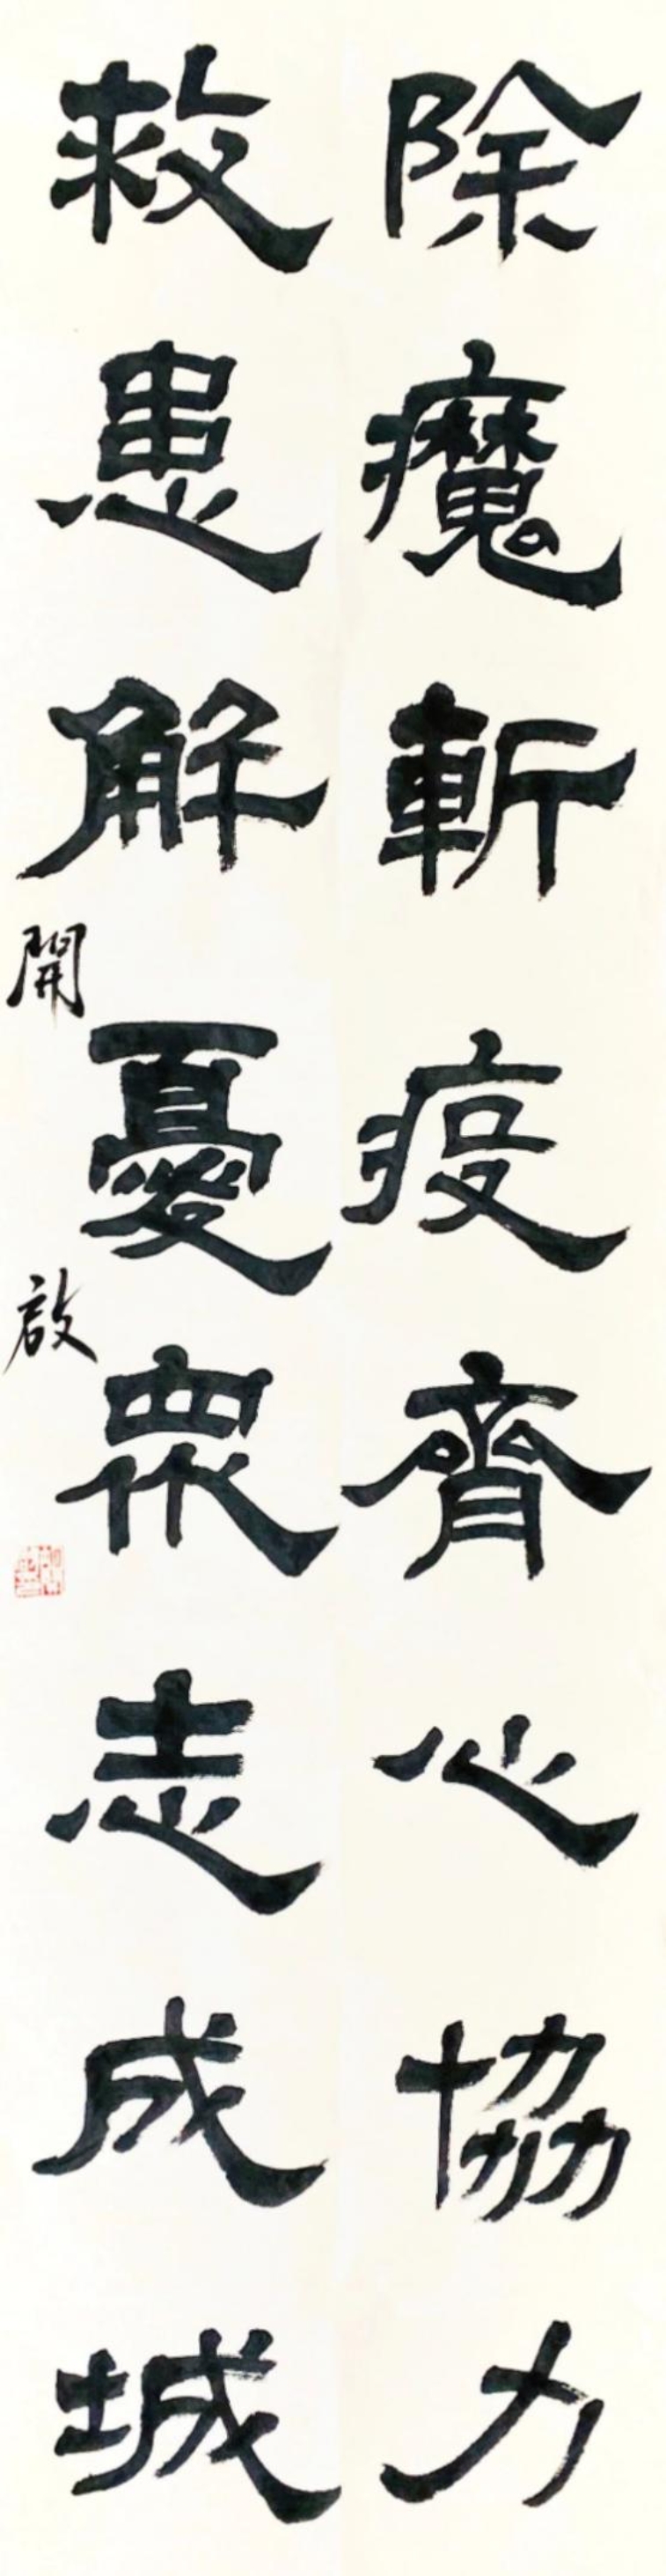 除魔斬疫齊心協力
救患解憂眾志成城
開啟